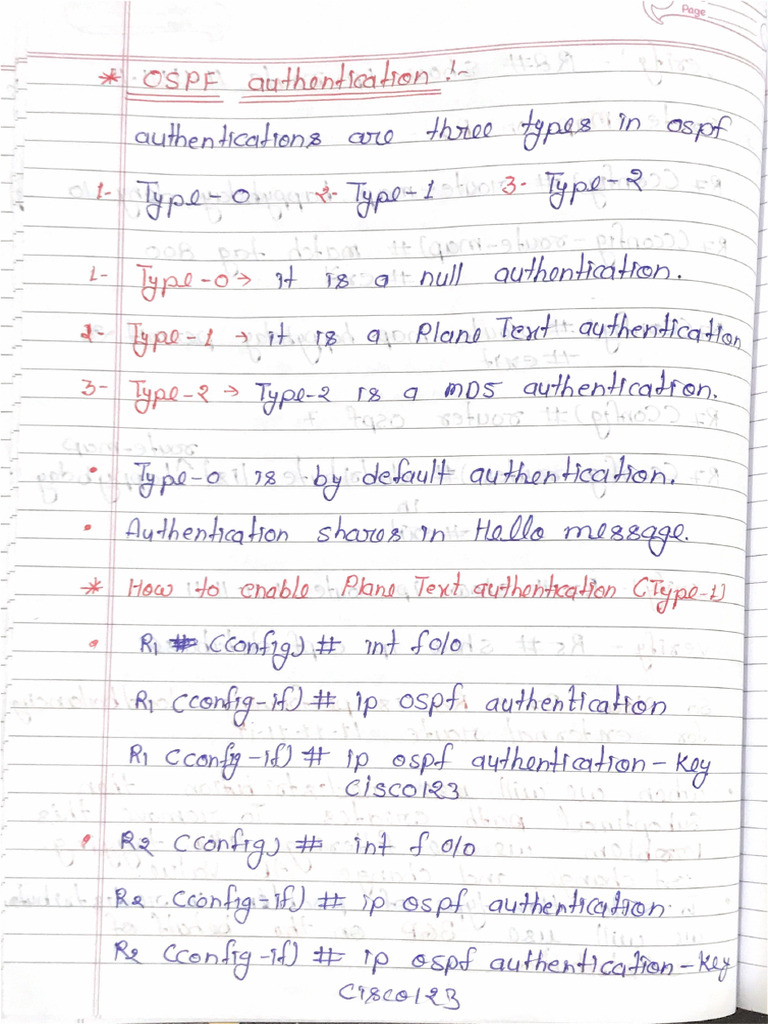 Page
* OSPF authentication :-
authentications are three types in ospf
1- Type-0 2- Type-1 3- Type-2
1- Type-0 → it is a null authentication.
2- Type-1 → it is a Plane Text authentication
3- Type-2 → Type-2 is a MD5 authentication.
• Type-0 is by default authentication.
• Authentication shares in Hello message.
* How to enable Plane Text authentication (Type-1)
• R1 (config) # int f0/0
R1 (config-if) # ip ospf authentication
R1 (config-if) # ip ospf authentication-key
cisco123
• R2 (config) # int f 0/0
R2 (config-if) # ip ospf authentication
R2 (config-if) # ip ospf authentication-key
cisco123